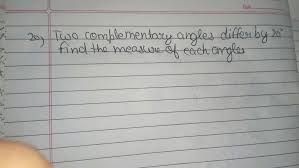 20) Two complementary angles differ by 20°
find the measure of each angles